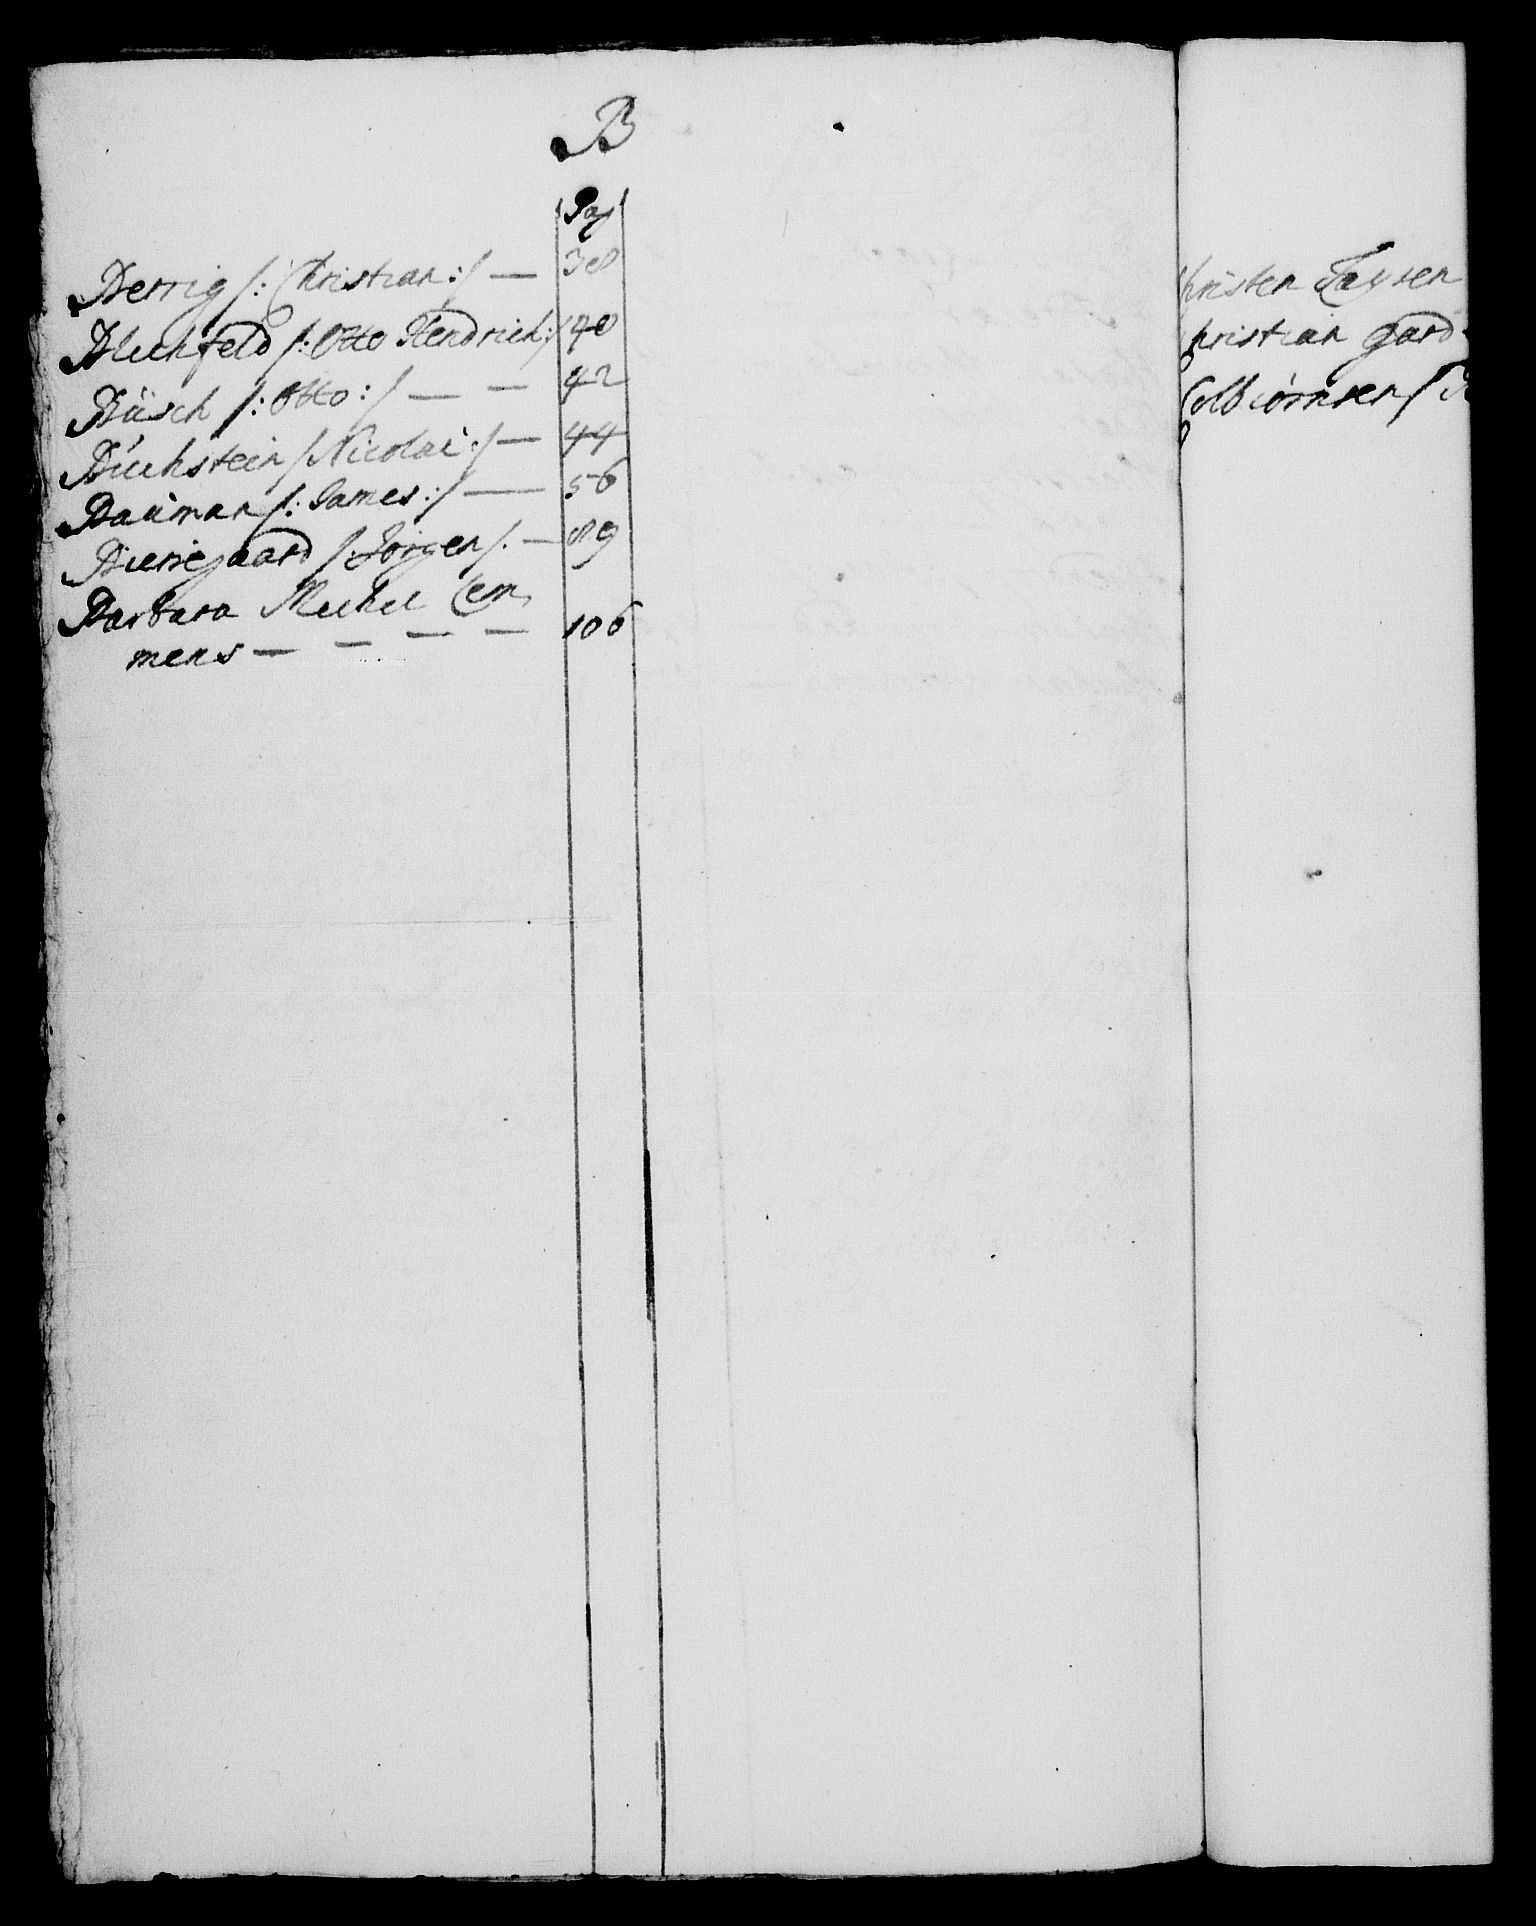 B
Pag
Berrig /: Christian :/ — 38
Blichfeld /: Otto Hendrich :/ 40
Büsch /: Otto :/ — — 42
Buchstein / Nicolai :/ — 44
Bauman /: James :/ — 56
Bierregaard /: Jörgen /. — 89
Barbara Mechel Cem
mens — — — — 106
Christen Faysen
Christian Gard
Colbiörnsen /